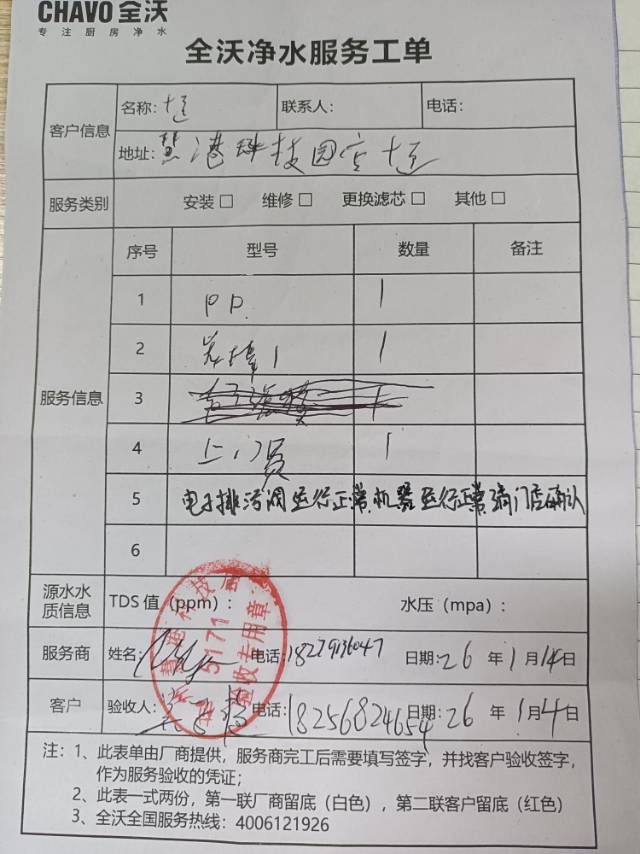 CHAVO 全沃
专注厨房净水
全沃净水服务工单
客户信息
名称:
联系人:
电话:
地址: 慧港科技园店
服务类别
安装□ 维修□ 更换滤芯□ 其他□
服务信息
序号 型号 数量 备注
1 PP. 1
2 炭棒1 1
3
4 上门费 1
5 电子排污阀运行正常.机器运行正常.请门店确认
6
源水水质信息
TDS 值（ppm）: 水压（mpa）:
服务商 姓名: 电话: 日期: 26 年 1 月 14 日
客户 验收人: 电话: 18256824654 日期: 26 年 1 月 4 日
5171
验收专用章
注：1、此表单由厂商提供，服务商完工后需要填写签字，并找客户验收签字，
作为服务验收的凭证;
2、此表一式两份，第一联厂商留底（白色），第二联客户留底（红色）
3、全沃全国服务热线：4006121926